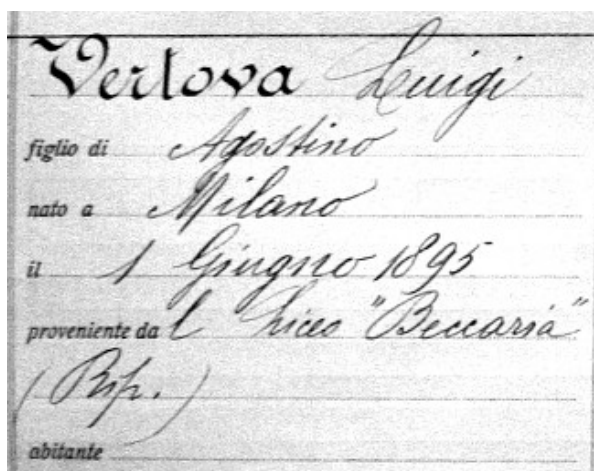 Vertova Luigi
figlio di Agostino
nato a Milano
il 1 Giugno 1895
proveniente da l Liceo "Beccaria"
(Rip.)
abitante